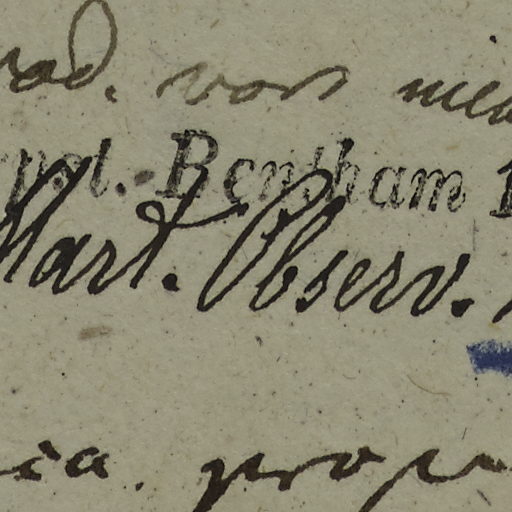 rad. von
pt. Bentham
Mart. Observ.
ia. prop